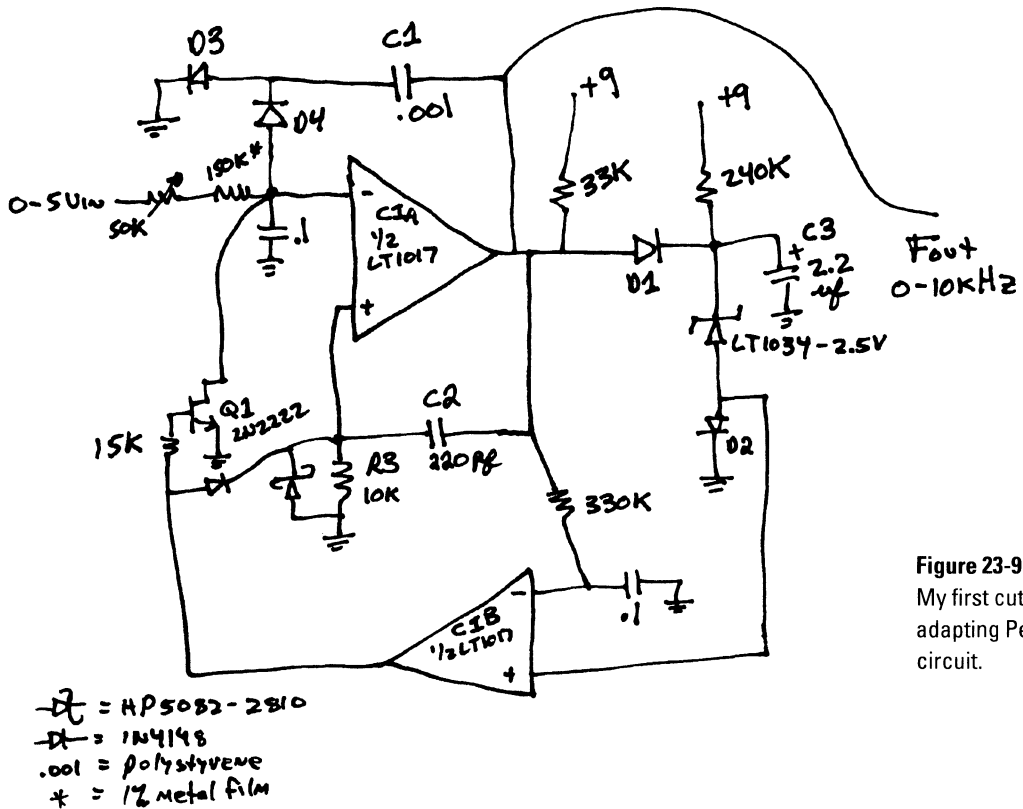 D3
C1
.001
D4
+9
+9
33K
240K
150K*
0-5VIN
50K
.1
-
C1A
1/2
LT1017
+
D1
+
C3
2.2
uf
Fout
0-10KHz
LT1034-2.5V
D2
Q1
2N2222
15K
C2
220pf
R3
10K
330K
.1
-
C1B
1/2 LT1017
+
= HP5082-2810
= 1N4148
.001 = polystyrene
* = 1% metal film
Figure 23-9
My first cut
adapting Pe
circuit.